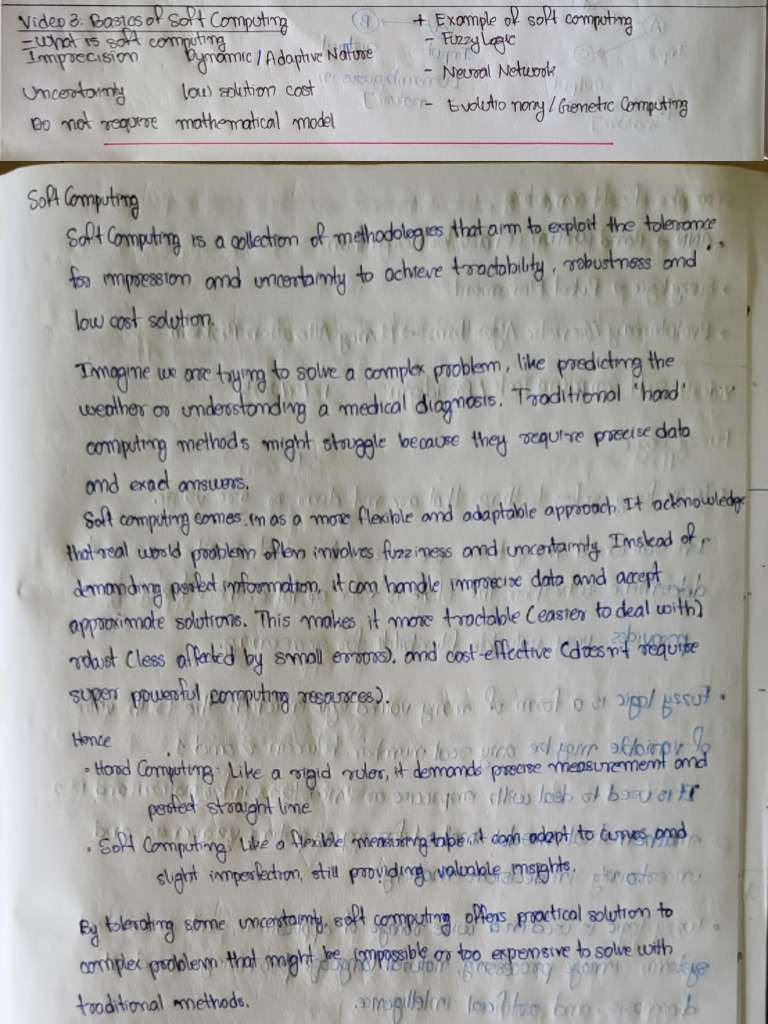 Video 3: Basics of Soft Computing
= What is soft computing
Imprecision Dynamic / Adaptive Nature
Uncertainty low solution cost
Do not require mathematical model
+ Example of soft computing
- Fuzzy Logic
- Neural Network
- Evolutionary / Genetic Computing
Soft Computing
Soft Computing is a collection of methodologies that aim to exploit the tolerance
for impression and uncertainty to achieve tractability, robustness and
low cost solution.
Imagine we are trying to solve a complex problem, like predicting the
weather or understanding a medical diagnosis. Traditional "hard"
computing methods might struggle because they require precise data
and exact answers.
Soft computing comes in as a more flexible and adaptable approach. It acknowledge
that real world problem often involves fuzziness and uncertainty. Instead of
demanding perfect information, it can handle imprecise data and accept
approximate solutions. This makes it more tractable (easier to deal with)
robust (less affected by small errors), and cost-effective (doesn't require
super powerful computing resources).
Hence
• Hard Computing: Like a rigid ruler, it demands precise measurement and
perfect straight line
• Soft Computing: Like a flexible measuring tape it can adapt to curves and
slight imperfection, still providing valuable insights.
By tolerating some uncertainty, soft computing offers practical solution to
complex problem that might be impossible or too expensive to solve with
traditional methods.